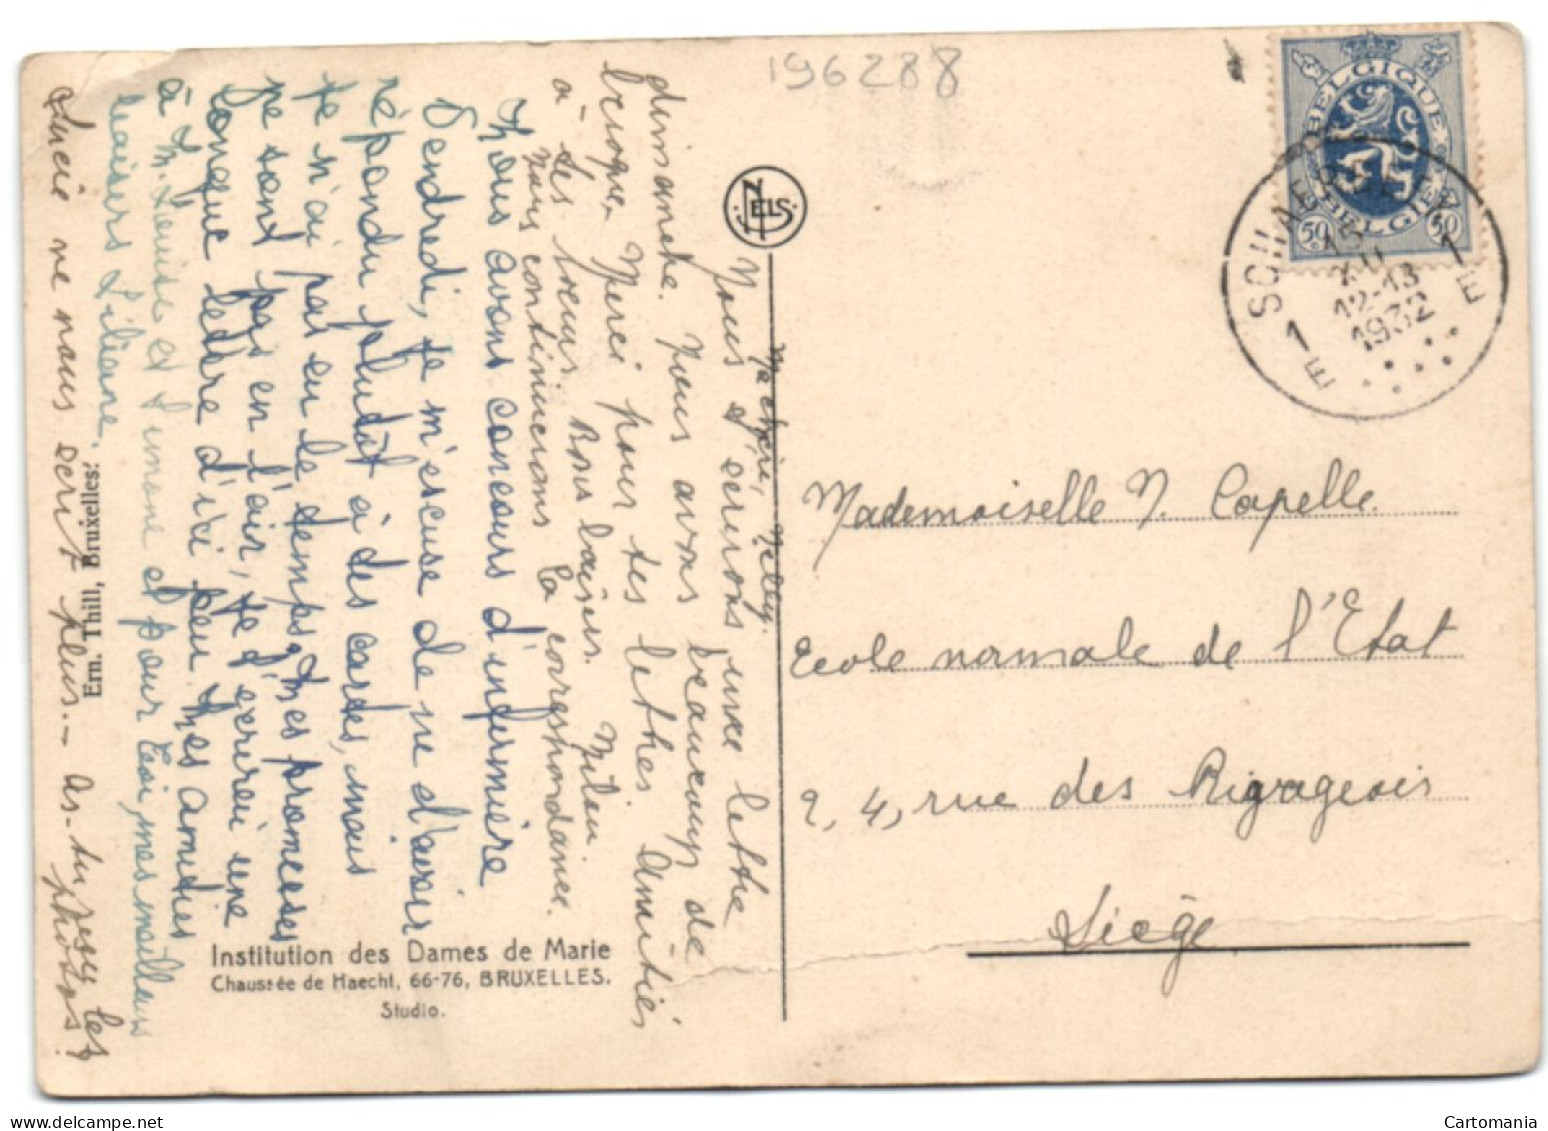 196288
BELGIQUE
BELGIË
50 50
SCHAERBEEK
1 1
E E
15
XII
12-13
1932
NELS
Ma chère Nelly.
Nous t'écrirons une lettre
dimanche. Nous avons beaucoup de
briques. Merci pour tes lettres. Amitiés
à tes soeurs. Bons baisers. Milou.
Nous continuerons la correspondance.
Nous avons concours d'infirmière
Vendredi, je m'escuse de ne d'avoir
répondu plutôt à tes cartes, mais
je n'ai pas eu le temps, mes promesses
ne sont pas en l'air, je t'écrirai une
longue lettre d'ici peu. Mes amitiés
à M. Louise et Simone et pour toi, mes meilleurs
baisers Liliane.
Lucie ne nous écrit plus. — As-tu reçu les
photos?
Ern. Thill, Bruxelles.
Institution des Dames de Marie
Chaussée de Haecht, 66-76, BRUXELLES.
Studio.
Mademoiselle N. Capelle.
Ecole normale de l'Etat
2, 4, rue des Rivageois
Liège
Cartomania